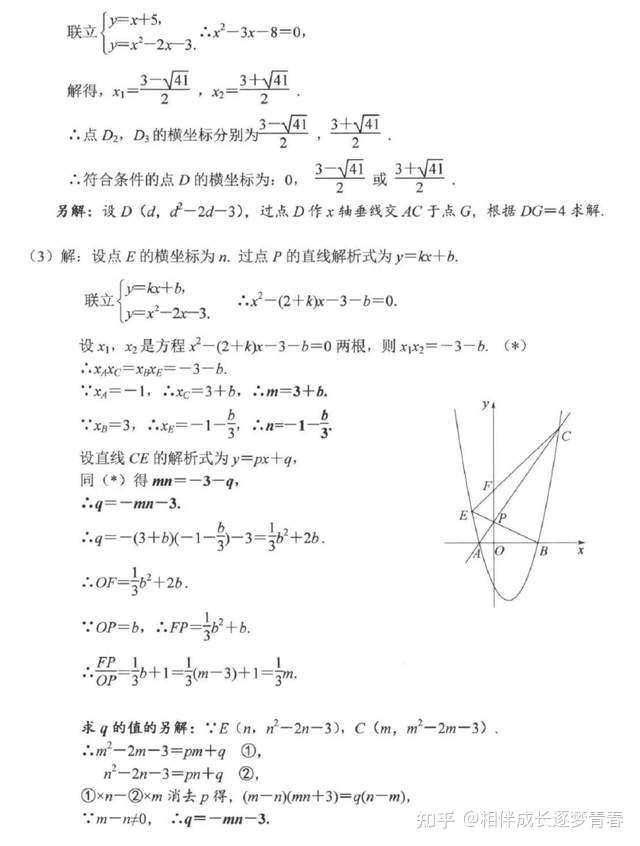 联立{y=x+5, y=x²-2x-3. ∴x²-3x-8=0,
解得, x₁=(3-√41)/2 , x₂=(3+√41)/2 .
∴点 D₂, D₃的横坐标分别为(3-√41)/2 , (3+√41)/2 .
∴符合条件的点 D 的横坐标为: 0, (3-√41)/2 或 (3+√41)/2 .
另解: 设 D (d, d²-2d-3), 过点 D 作 x 轴垂线交 AC 于点 G, 根据 DG=4 求解.
(3) 解: 设点 E 的横坐标为 n. 过点 P 的直线解析式为 y=kx+b.
联立{y=kx+b, y=x²-2x-3. ∴x²-(2+k)x-3-b=0.
设 x₁, x₂是方程 x²-(2+k)x-3-b=0 两根, 则 x₁x₂=-3-b. (*)
∴x_A x_C=x_B x_E=-3-b.
∵x_A=-1, ∴x_C=3+b, ∴m=3+b.
∵x_B=3, ∴x_E=-1-b/3, ∴n=-1-b/3.
设直线 CE 的解析式为 y=px+q,
同 (*) 得 mn=-3-q,
∴q=-mn-3.
∴q=-(3+b)(-1-b/3)-3=1/3b²+2b.
∴OF=1/3b²+2b.
∵OP=b, ∴FP=1/3b²+b.
∴FP/OP=1/3b+1=1/3(m-3)+1=1/3m.
y
C
F
E
P
A
O
B
x
求 q 的值的另解: ∵E (n, n²-2n-3), C (m, m²-2m-3) .
∴m²-2m-3=pm+q ①,
n²-2n-3=pn+q ②,
①×n-②×m 消去 p 得, (m-n)(mn+3)=q(n-m),
∵m-n≠0, ∴q=-mn-3.
知乎 @相伴成长逐梦青春